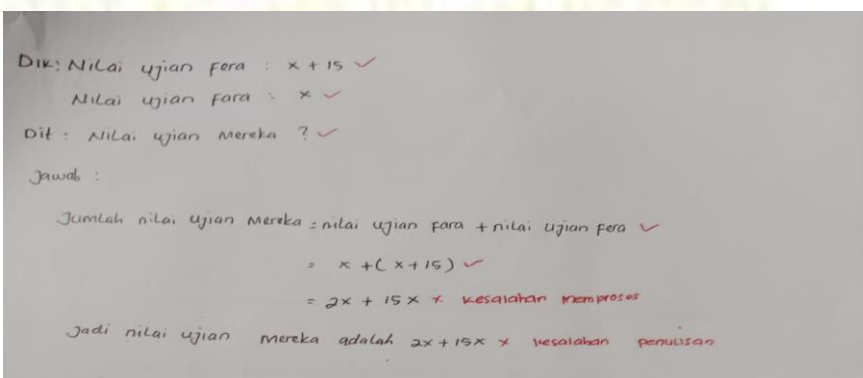 Dik: Nilai ujian fera : x + 15 ✓
Nilai ujian fara : x ✓
Dit : Nilai ujian mereka ? ✓
Jawab :
Jumlah nilai ujian mereka = nilai ujian fara + nilai ujian fera ✓
= x + ( x + 15) ✓
= 2x + 15 x × kesalahan memproses
Jadi nilai ujian mereka adalah 2x + 15x × kesalahan penulisan